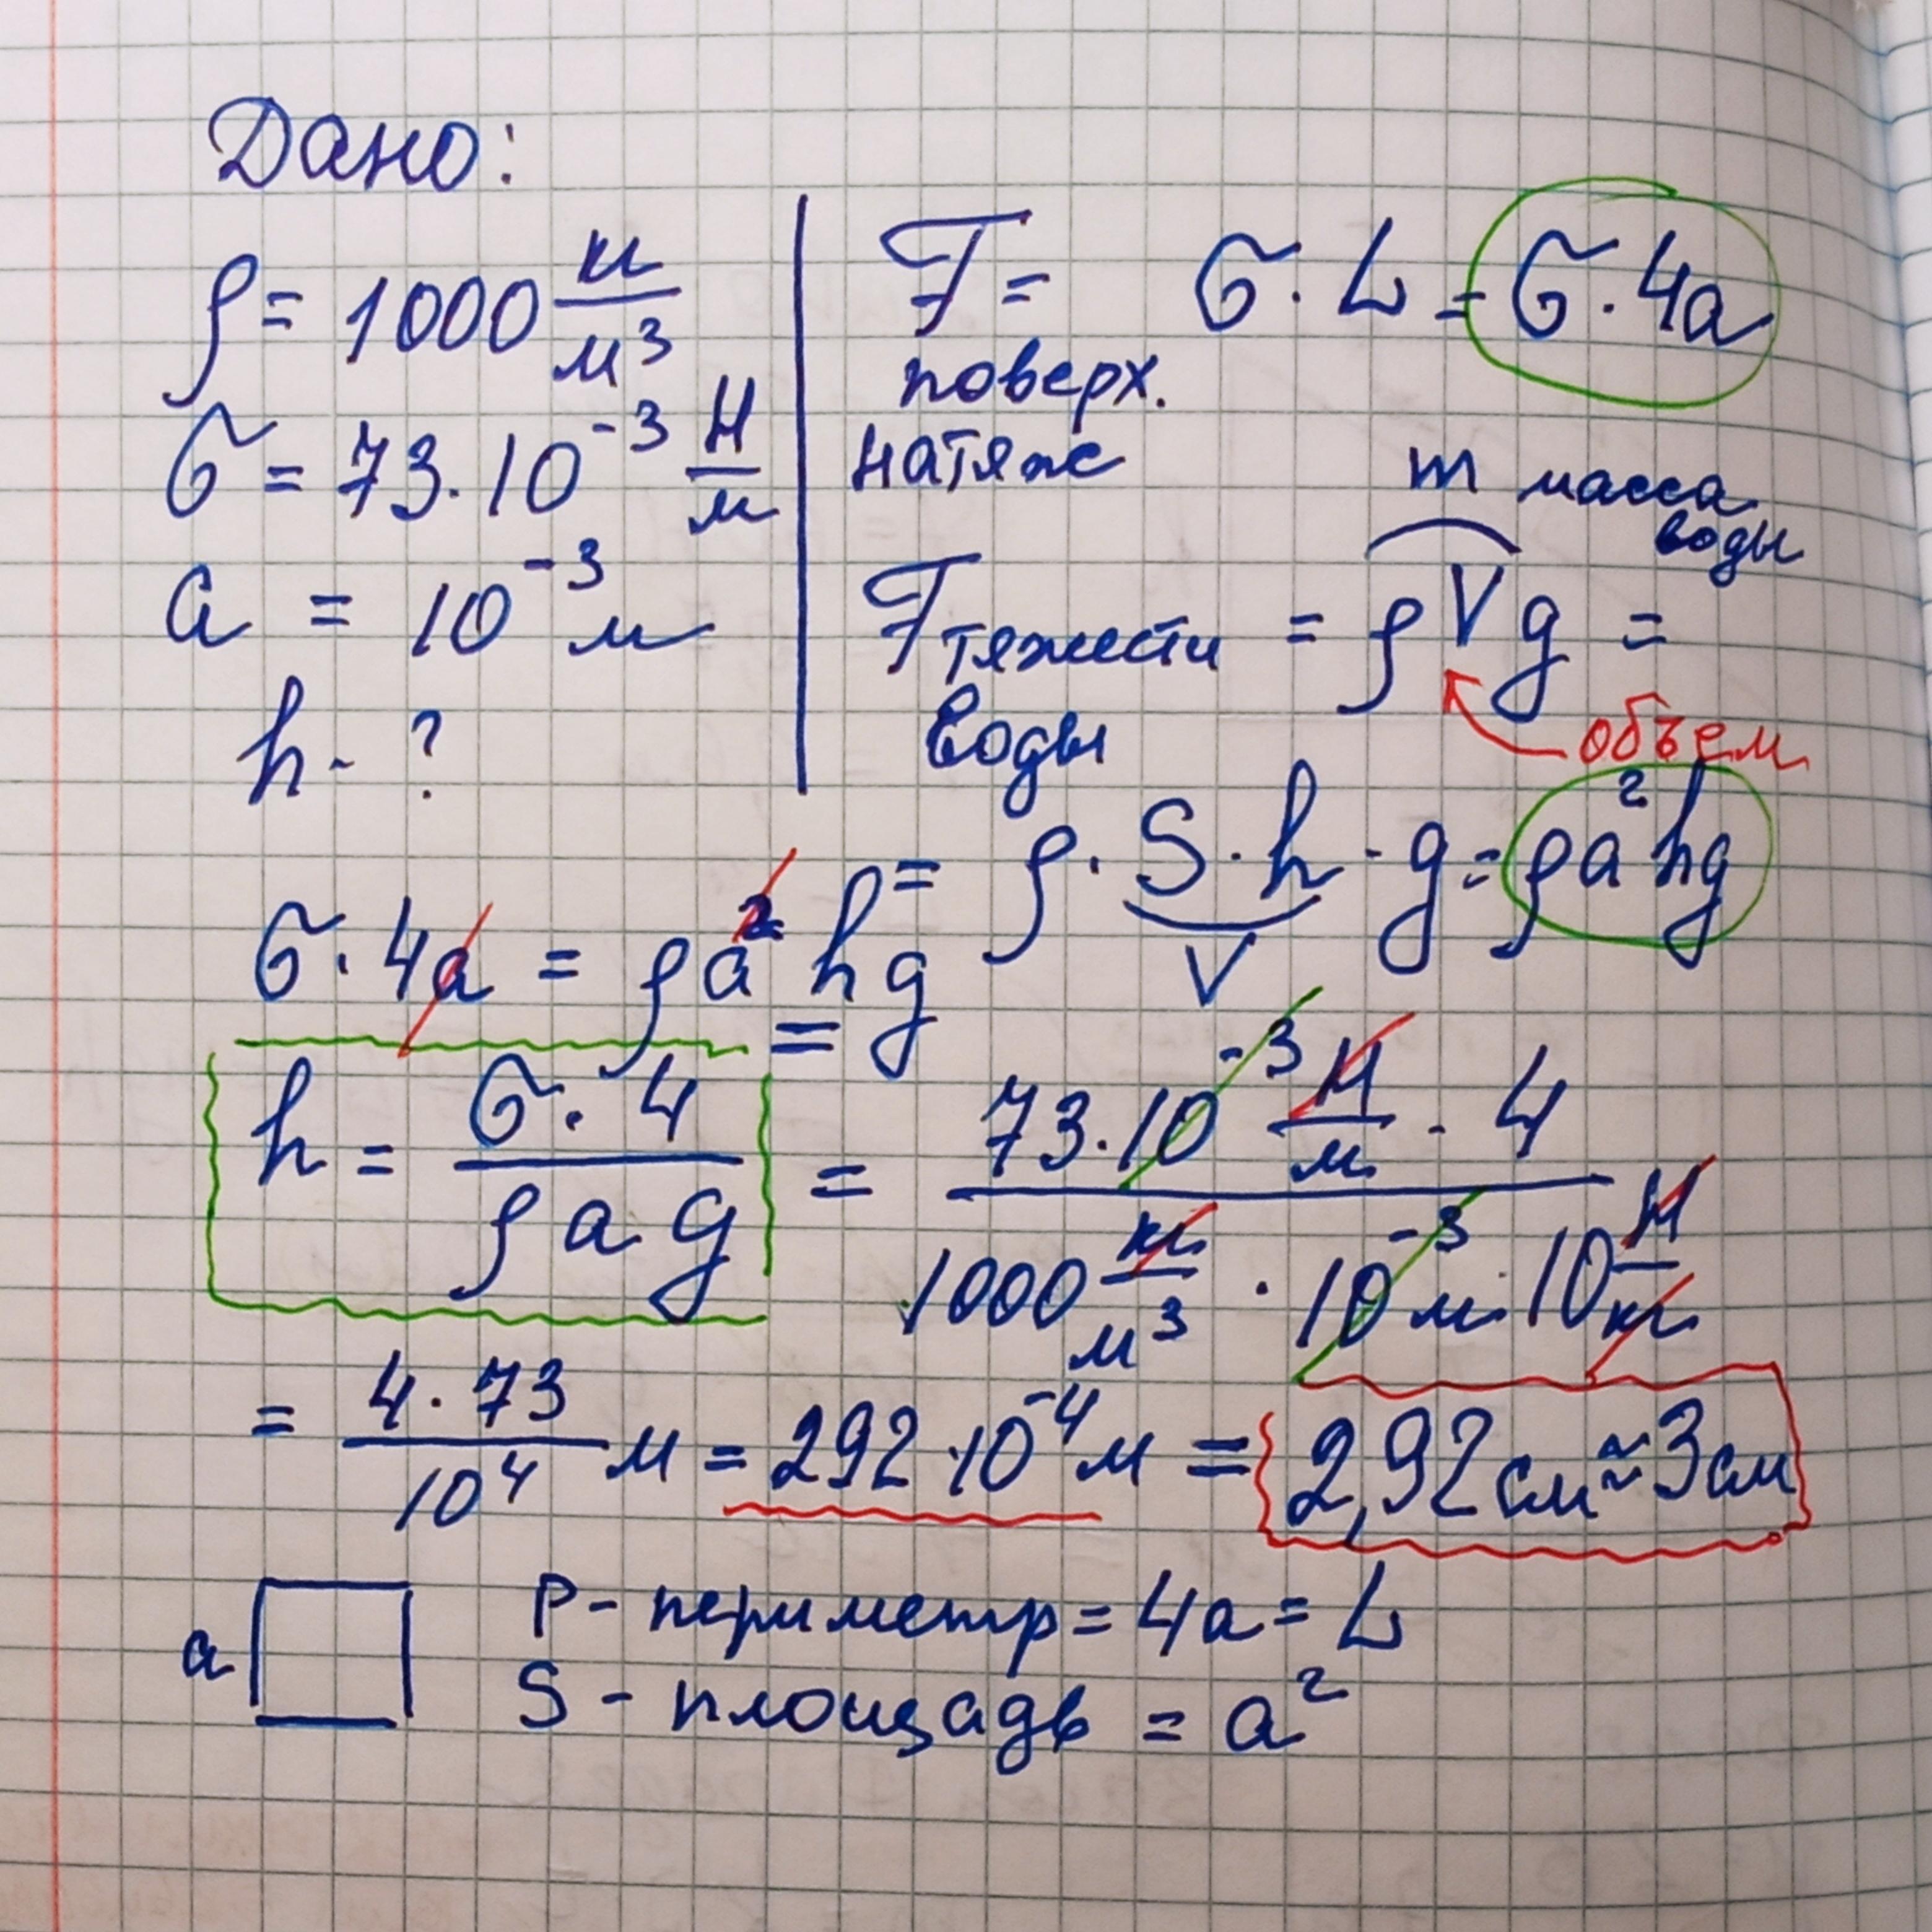 Дано:
ρ = 1000 кг/м³
σ = 73·10⁻³ Н/м
a = 10⁻³ м
h - ?
F поверх. натяж = σ · L = σ · 4a
m масса воды
F тяжести воды = ρVg =
объем
= ρ · S · h · g = ρa²hg
V
σ · 4a = ρa²hg
=
h = σ · 4 / ρ a g = 73·10⁻³ Н/м · 4 / 1000 кг/м³ · 10⁻³ м · 10 Н/кг
= 4·73 / 10⁴ м = 292·10⁻⁴ м = 2,92 см ≈ 3 см
a
P - периметр = 4a = L
S - площадь = a²